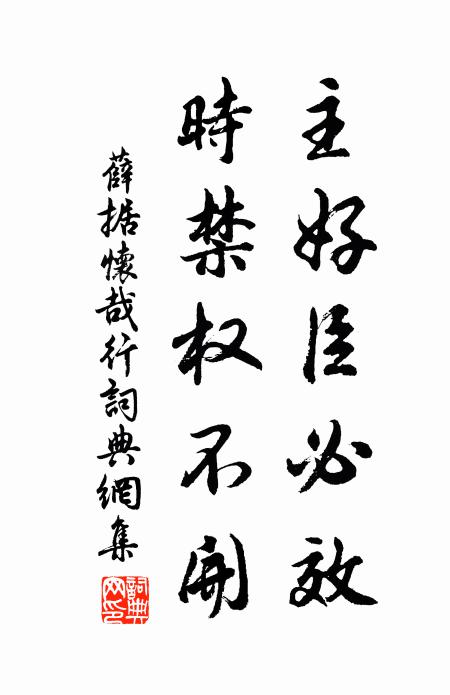 主好臣必效
時禁权不開
薛据懷哉行詞典網集
詞典